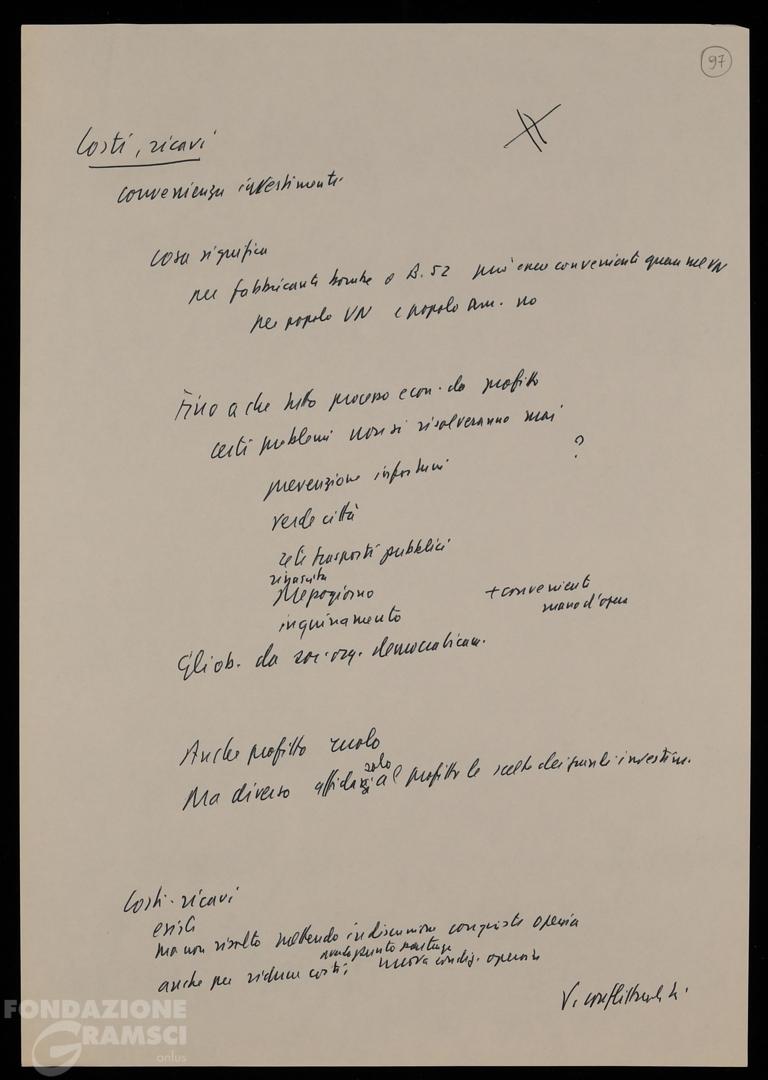 97
Costi, ricavi
convenienza investimenti
Cosa significa
per fabbricanti bombe o B.52 più convenienti guerra nel VN
per popolo VN e popolo am. no
Fino a che tutto processo econ. da profitto
certi problemi non si risolveranno mai
?
prevenzione infortuni
verde città
reti trasporti pubblici
rinascita
Mezzogiorno
+ convenienti
mano d'opera
inquinamento
Gli ob. da soc. org. democraticam.
Anche profitto ruolo
solo
Ma diverso affidarsi al profitto le scelte dei grandi investim.
Costi-ricavi
esiste
ma non risolto mettendo in discussione conquiste operaie
punto partenza
anche per ridurre costi, nuova condiz. operaia
V. conflittualità
FONDAZIONE
GRAMSCI
onlus